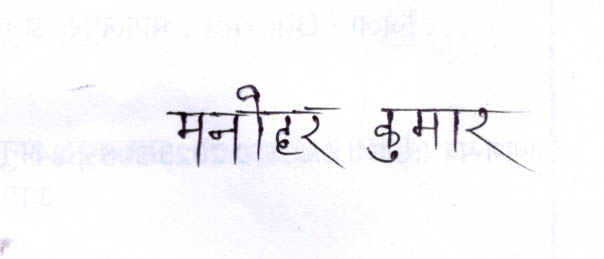 मनोहर कुमार